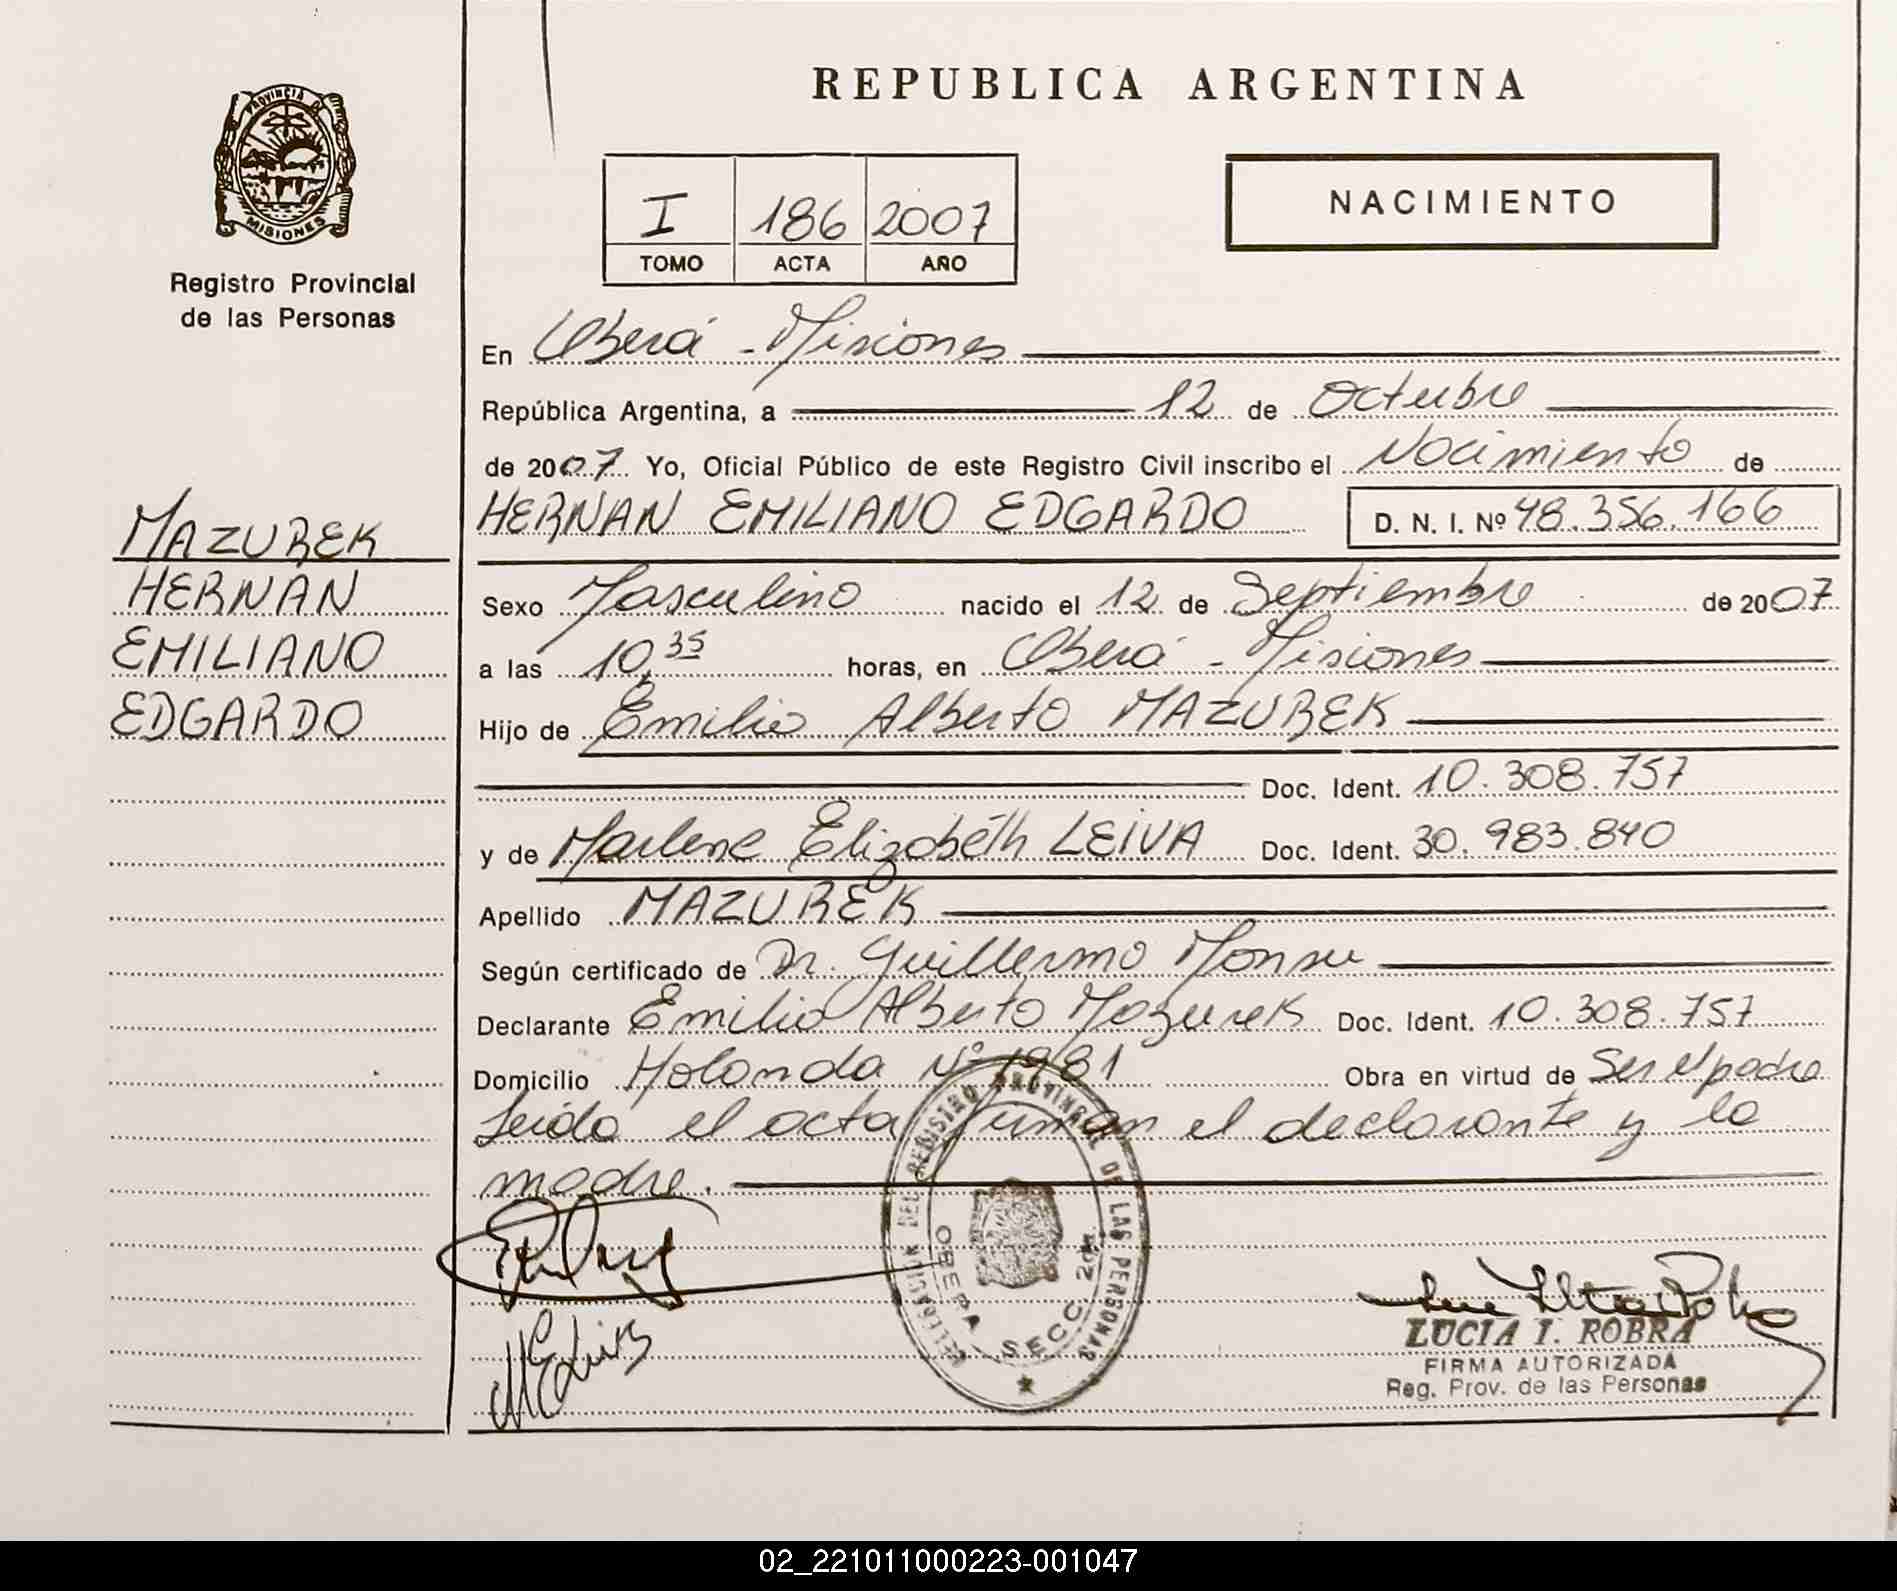 REPUBLICA ARGENTINA
PROVINCIA DE
MISIONES
Registro Provincial
de las Personas
I 186 2007
TOMO ACTA AÑO
NACIMIENTO
En Oberá - Misiones
República Argentina, a 12 de Octubre
de 2007 Yo, Oficial Público de este Registro Civil inscribo el Nacimiento de
HERNAN EMILIANO EDGARDO D. N. I. Nº 48.356.166
MAZUREK
HERNAN
EMILIANO
EDGARDO
Sexo Masculino nacido el 12 de Septiembre de 2007
a las 10,35 horas, en Oberá - Misiones
Hijo de Emilio Alberto MAZUREK
Doc. Ident. 10.308.757
y de Marlene Elizabéth LEIVA Doc. Ident. 30.983.840
Apellido MAZUREK
Según certificado de Dr. Guillermo Monsu
Declarante Emilio Alberto Mazurek Doc. Ident. 10.308.757
Domicilio Holanda Nº 1981 Obra en virtud de Ser el padre
Leída el acta firman el declarante y la
madre.
DELEGACION DEL REGISTRO PROVINCIAL DE LAS PERSONAS
SECC. 2da.
LUCIA I. ROBRA
FIRMA AUTORIZADA
Reg. Prov. de las Personas
02_221011000223-001047